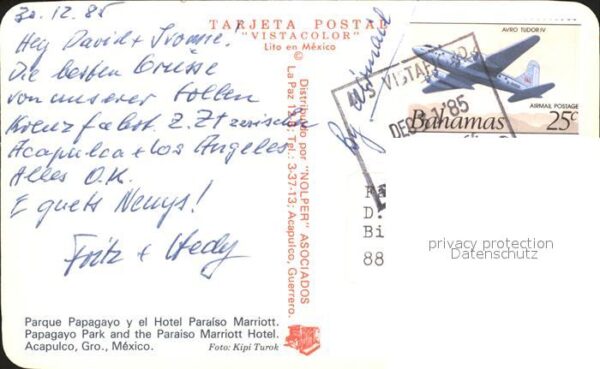 30.12.85
Hey David + Ivonne!
Die besten Grüsse
von unserer tollen
Kreuzfahrt. z. Zt zwischen
Acapulca + Los Angeles
Alles O.K.
E guets Neuys!
Fritz + Hedy
TARJETA POSTAL
"VISTACOLOR"
Lito en México
©
Distribuido por "NOLPER" ASOCIADOS
La Paz Tel.: 3-37-13; Acapulco, Guerrero.
By airmail
M/S VISTAFJORD
DEC 31 '85
AVRO TUDOR IV
AIRMAIL POSTAGE
Bahamas 25c
Fa
D.
Bi
88
privacy protection
Datenschutz
Parque Papagayo y el Hotel Paraíso Marriott.
Papagayo Park and the Paraiso Marriott Hotel.
Acapulco, Gro., México.
Foto: Kipi Turok